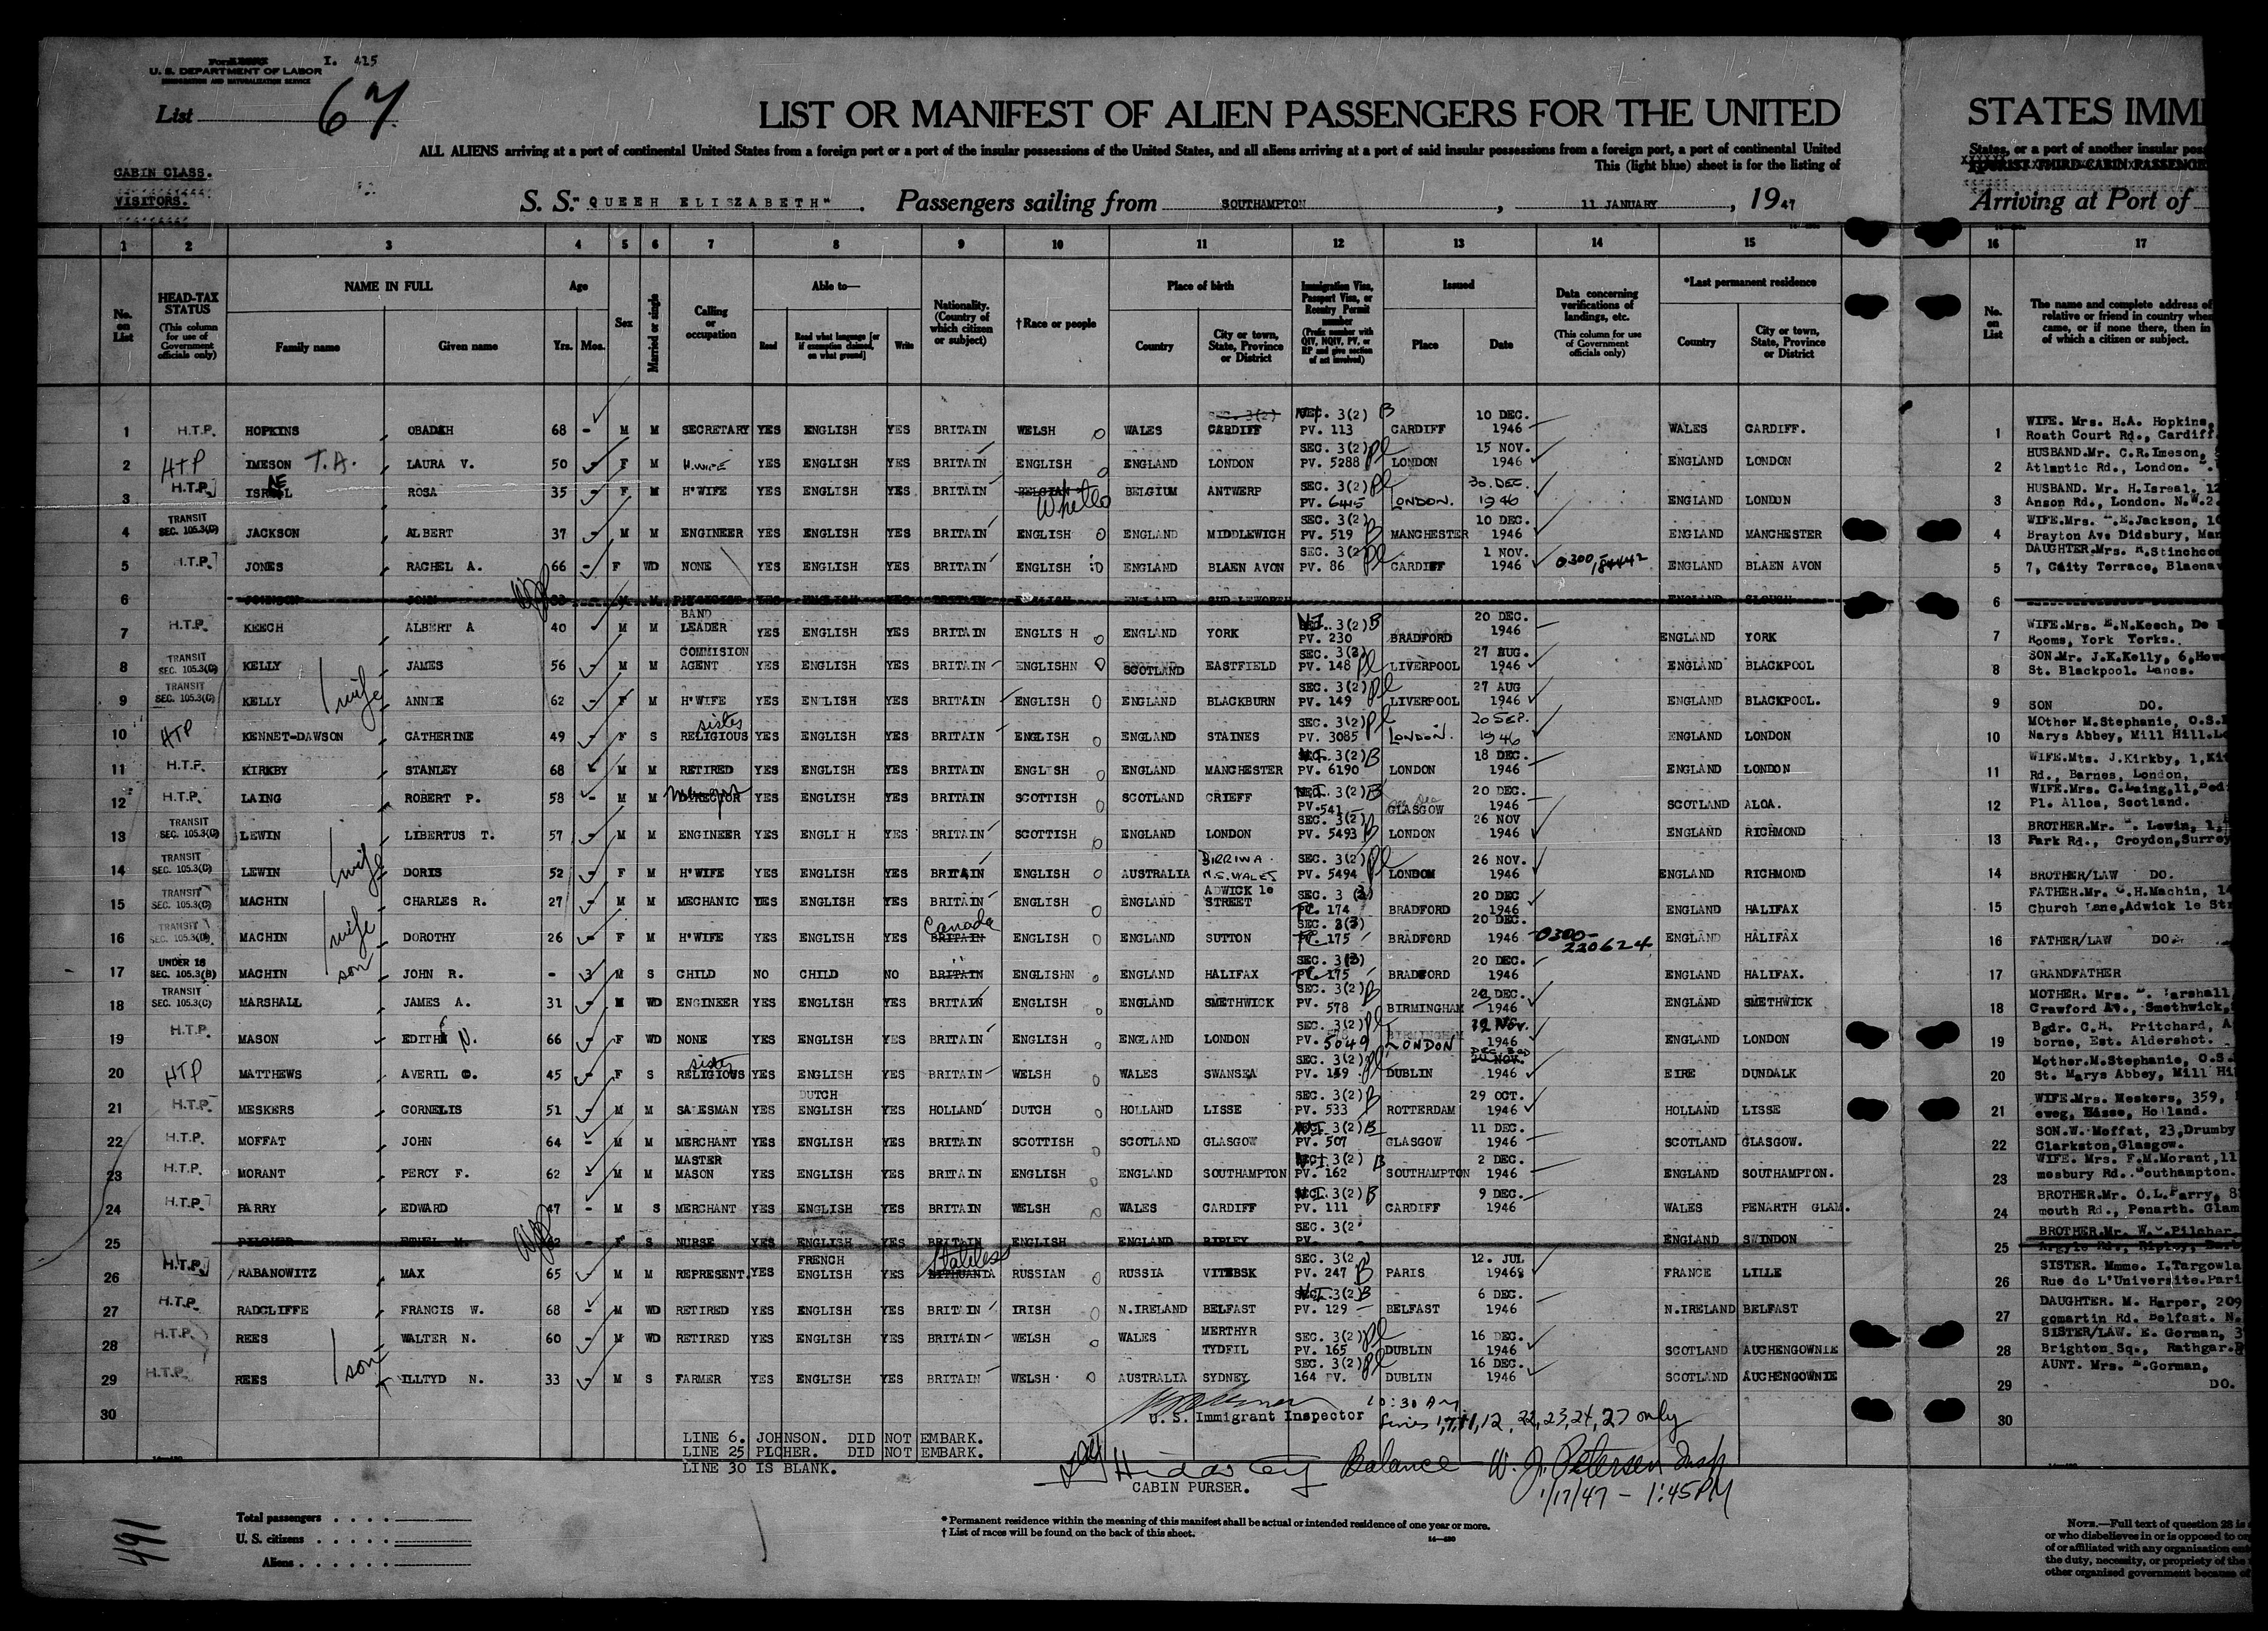 I. 415
U. S. DEPARTMENT OF LABOR
IMMIGRATION AND NATURALIZATION SERVICE
List 67
LIST OR MANIFEST OF ALIEN PASSENGERS FOR THE UNITED
STATES IMMI
ALL ALIENS arriving at a port of continental United States from a foreign port or a port of the insular possessions of the United States, and all aliens arriving at a port of said insular possessions from a foreign port, a port of continental United
States, or a port of another insular pos
This (light blue) sheet is for the listing of
CABIN CLASS.
VISITORS.
S. S. "QUEEH ELISZABETH" Passengers sailing from SOUTHAMPTON, 11 JANUARY, 1947
Arriving at Port of
1 2 3 4 5 6 7 8 9 10 11 12 13 14 15 16 17
No. on List
HEAD-TAX STATUS (This column for use of Government officials only)
NAME IN FULL Family name Given name
Age Yrs. Mos.
Sex
Married or single
Calling or occupation
Able to— Read Read what language [or if exemption claimed, on what ground] Write
Nationality. (Country of which citizen or subject)
†Race or people
Place of birth Country City or town, State, Province or District
Immigration Visa, Passport Visa, or Reentry Permit number (Prefix number with QIV, NQIV, PV, or RP and give section of act involved)
Issued Place Date
Data concerning verifications of landings, etc. (This column for use of Government officials only)
*Last permanent residence Country City or town, State, Province or District
No. on List
The name and complete address of relative or friend in country whe came, or if none there, then in of which a citizen or subject.
1 H.T.P. HOPKINS OBADAH 68 - M M SECRETARY YES ENGLISH YES BRITAIN WELSH WALES CARDIFF SEC. 3(2) PV. 113 CARDIFF 10 DEC. 1946 WALES CARDIFF. 1 WIFE. Mrs. H.A. Hopkins, Roath Court Rd., Cardiff
2 HTP IMESON T.A. LAURA V. 50 - F M H.WIFE YES ENGLISH YES BRITAIN ENGLISH ENGLAND LONDON SEC. 3(2) PV. 5288 LONDON 15 NOV. 1946 ENGLAND LONDON 2 HUSBAND.Mr. C.R.Imeson, Atlantic Rd., London.
3 H.T.P. ROSA 35 - F M H'WIFE YES ENGLISH YES BRITAIN BELGIAN White BELGIUM ANTWERP SEC. 3(2) PV. 6445 LONDON. 30. DEC. 1946 ENGLAND LONDON 3 HUSBAND. Mr. H.Isreal, 12 Anson Rd., London. N.W.2.
4 TRANSIT SEC. 105.3(C) JACKSON ALBERT 37 - M M ENGINEER YES ENGLISH YES BRITAIN ENGLISH ENGLAND MIDDLEWICH SEC. 3(2) PV. 519 MANCHESTER 10 DEC. 1946 ENGLAND MANCHESTER 4 WIFE.Mrs. .E.Jackson, Brayton Ave Didsbury, Man
5 H.T.P. JONES RACHEL A. 66 - F WD NONE YES ENGLISH YES BRITAIN ENGLISH ENGLAND BLAEN AVON SEC. 3(2) PV. 86 CARDIFF 1 NOV. 1946 0300/84442 ENGLAND BLAEN AVON 5 DAUGHTER.Mrs. Stinchcom 7, Gaity Terrace, Blaenav
6 JOHNSON JOHN M M YES ENGLISH YES BRITAIN ENGLISH ENGLAND ENGLAND SLOUGH 6
7 H.T.P. KEECH ALBERT A 40 - M M BAND LEADER YES ENGLISH YES BRITAIN ENGLIS H ENGLAND YORK 3(2) PV. 230 BRADFORD 20 DEC. 1946 ENGLAND YORK 7 WIFE.Mrs. E.N.Keech, De Rooms, York Yorks.
8 TRANSIT SEC. 105.3(C) KELLY JAMES 56 - M M COMMISION AGENT YES ENGLISH YES BRITAIN ENGLISHN SCOTLAND EASTFIELD SEC. 3(2) PV. 148 LIVERPOOL 27 AUG. 1946 ENGLAND BLACKPOOL 8 SON.Mr. J.K.Kelly, 6,Howe St. Blackpool. Lancs.
9 TRANSIT SEC. 105.3(C) KELLY wife ANNIE 62 - F M H'WIFE YES EN'LISH YES BRITAIN ENGLISH ENGLAND BLACKBURN SEC. 3(2) PV. 149 LIVERPOOL 27 AUG 1946 ENGLAND BLACKPOOL. 9 SON DO.
10 HTP KENNET-DAWSON CATHERINE 49 - F S sister RELIGIOUS YES ENGLISH YES BRITAIN ENGLISH ENGLAND STAINES SEC. 3(2) PV. 3085 LONDON. 20 SEP. 1946 ENGLAND LONDON 10 MOther M.Stephanie, O.S. Narys Abbey, Mill Hill.
11 H.T.P. KIRKBY STANLEY 68 - M M RETIRED YES ENGLISH YES BRITAIN ENGLISH ENGLAND MANCHESTER 3(2) PV. 6190 LONDON 18 DEC. 1946 ENGLAND LONDON 11 WIFE.Mts. J.Kirkby, 1, Rd., Barnes, London,
12 H.T.P. LAING ROBERT P. 58 - M M manager DIRECTOR YES ENGLISH YES BRITAIN SCOTTISH SCOTLAND CRIEFF 3(2) PV.541 GLASGOW 20 DEC. 1946 SCOTLAND ALOA. 12 WIFE.Mrs. C.Laing,11, Pl. Alloa, Scotland.
13 TRANSIT SEC. 105.3(C) LEWIN LIBERTUS T. 57 - M M ENGINEER YES ENGLI H YES BRITAIN SCOTTISH ENGLAND LONDON SEC. 3(2) PV. 5493 LONDON 26 NOV 1946 ENGLAND RICHMOND 13 BROTHER.Mr. Lewin, 1, Park Rd., Croydon,Surrey
14 TRANSIT SEC. 105.3(C) LEWIN wife DORIS 52 - F M H'WIFE YES ENGLISH YES BRITAIN ENGLISH AUSTRALIA BIRRIWA. N.S.WALES SEC. 3(2) PV. 5494 LONDON 26 NOV. 1946 ENGLAND RICHMOND 14 BROTHER/LAW DO.
15 TRANSIT SEC. 105.3(C) MACHIN CHARLES R. 27 - M M MECHANIC YES ENGLISH YES BRITAIN ENGLISH ENGLAND ADWICK le STREET SEC. 3 (3) 174 BRADFORD 20 DEC 1946 ENGLAND HALIFAX 15 FATHER.Mr. .H.Machin, 14 Church Lane,Adwick le St
16 TRANSIT SEC. 105.3(C) MACHIN wife DOROTHY 26 - F M H'WIFE YES ENGLISH YES Canada BRITAIN ENGLISH ENGLAND SUTTON SEC. 3(3) 175 BRADFORD 20 DEC. 1946 0300-220624 ENGLAND HALIFAX 16 FATHER/LAW DO.
17 UNDER 16 SEC. 105.3(B) MACHIN son JOHN R. - 3 M S CHILD NO CHILD NO " BRITAIN ENGLISHN ENGLAND HALIFAX SEC. 3(3) 175 BRADFORD 20 DEC. 1946 ENGLAND HALIFAX. 17 GRANDFATHER
18 TRANSIT SEC. 105.3(C) MARSHALL JAMES A. 31 - M WD ENGINEER YES ENGLISH YES BRITAIN ENGLISH ENGLAND SMETHWICK SEC. 3(2) PV. 578 BIRMINGHAM DEC. 1946 ENGLAND SMETHWICK 18 MOTHER. Mrs. Marshall Crawford Av., Smethwick,
19 H.T.P. MASON EDITH N. 66 - F WD NONE YES ENGLISH YES BRITAIN ENGLISH ENGLAND LONDON SEC. 3(2) PV. 5049 LONDON Nov. 1946 ENGLAND LONDON 19 Bgdr. C.H. Pritchard, A borne, Est. Aldershot.
20 HTP MATTHEWS AVERIL 45 - F S sister RELIGIOUS YES ENGLISH YES BRITAIN WELSH WALES SWANSEA SEC. 3(2) PV. 159 DUBLIN 1946 EIRE DUNDALK 20 Mother.M.Stephanie, O.S. St. Marys Abbey, Mill Hi
21 H.T.P. MESKERS CORNELIS 51 - M M SALESMAN YES DUTCH ENGLISH YES HOLLAND DUTCH HOLLAND LISSE SEC. 3(2) PV. 533 ROTTERDAM 29 OCT. 1946 HOLLAND LISSE 21 WIFE.Mrs. Meskers, 359, eweg, Lisse, Holland.
22 H.T.P. MOFFAT JOHN 64 - M M MERCHANT YES ENGLISH YES BRITAIN SCOTTISH SCOTLAND GLASGOW 3(2) PV. 507 GLASGOW 11 DEC. 1946 SCOTLAND GLASGOW. 22 SON.W. Moffat, 23,Drumby Clarkston,Glasgow.
23 H.T.P. MORANT PERCY F. 62 - M M MASTER MASON YES ENGLISH YES BRITAIN ENGLISH ENGLAND SOUTHAMPTON 3(2) PV. 162 SOUTHAMPTON 2 DEC. 1946 ENGLAND SOUTHAMPTON. 23 WIFE. Mrs. F.M.Morant,11 mesbury Rd. Southampton.
24 H.T.P. PARRY EDWARD 47 - M S MERCHANT YES ENGLISH YES BRITAIN WELSH WALES CARDIFF 3(2) PV. 111 CARDIFF 9 DEC. 1946 WALES PENARTH GLAM. 24 BROTHER.Mr. O.L.Parry, 8 mouth Rd., Penarth. Glam
25 PILCHER ETHEL M. - F S NURSE YES ENGLISH YES BRITAIN ENGLISH ENGLAND RIPLEY SEC. 3(2 PV. ENGLAND SWINDON 25 BROTHER.Mr. W. Pilcher Argyle Rd., Ripley, Derb
26 H.T.P. RABANOWITZ MAX 65 - M M REPRESENT. YES FRENCH ENGLISH YES Stateless LITHUANIA RUSSIAN RUSSIA VITEBSK SEC. 3(2) PV. 247 PARIS 12. JUL 1946 FRANCE LILLE 26 SISTER. Mmme. I.Targowla Rue de L'Universite.Pari
27 H.T.P. RADCLIFFE FRANCIS W. 68 - M WD RETIRED YES ENGLISH YES BRITAIN IRISH N.IRELAND BELFAST 3(2) PV. 129 BELFAST 6 DEC. 1946 N.IRELAND BELFAST 27 DAUGHTER. M. Harper, 209 gomartin Rd. Belfast. N.
28 H.T.P. REES WALTER N. 60 - M WD RETIRED YES ENGLISH YES BRITAIN WELSH WALES MERTHYR TYDFIL SEC. 3(2) PV. 165 DUBLIN 16 DEC. 1946 SCOTLAND AUCHENGOWNIE 28 SISTER/LAW. E. Gorman, 3 Brighton Sq., Rathgar.
29 H.T.P. REES son ILLTYD N. 33 - M S FARMER YES ENGLISH YES BRITAIN WELSH AUSTRALIA SYDNEY SEC. 3(2) 164 PV. DUBLIN 16 DEC. 1946 SCOTLAND AUCHENGOWNIE 29 AUNT. Mrs. .Gorman, DO.
30 30
U.S. Immigrant Inspector 10:30 AM
Lines 1,7,11,12, 22,23,24,27 only
LINE 6. JOHNSON. DID NOT EMBARK.
LINE 25 PLCHER. DID NOT EMBARK.
LINE 30 IS BLANK.
CABIN PURSER.
Balance W. J. Petersen Insp
1/17/47 - 1:45PM
491
Total passengers
U. S. citizens
Aliens
* Permanent residence within the meaning of this manifest shall be actual or intended residence of one year or more.
† List of races will be found on the back of this sheet.
NOTE.—Full text of question 28 is
or who disbelieves in or is opposed to or
of or affiliated with any organization
the duty, necessity, or propriety of the
other organized government because of